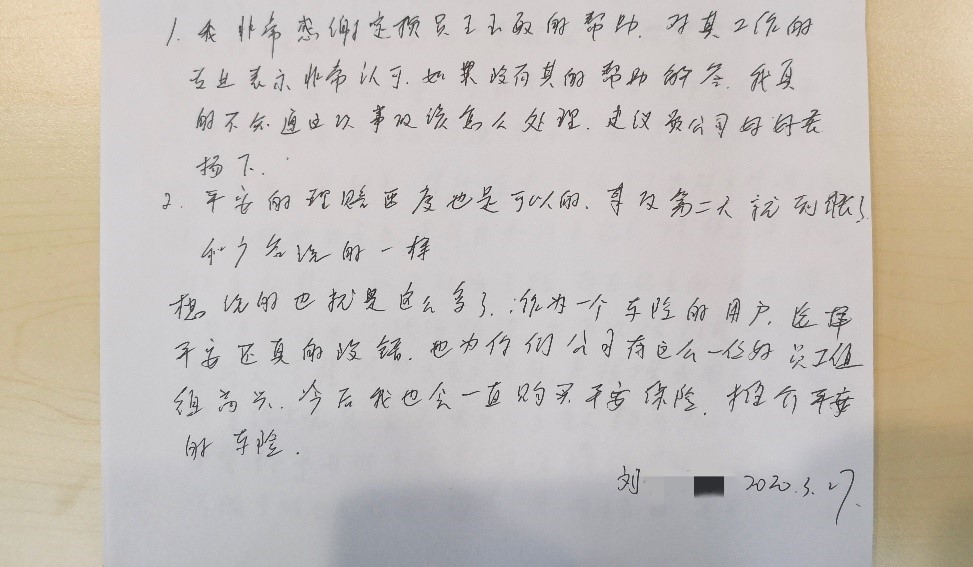 1. 我非常感谢定损员王玉敏的帮助. 对其工作的
专业表示非常认可. 如果没有其的帮助的答. 我真
的不知道这次事故该怎么处理. 建议贵公司好好表
扬下.
2. 平安的理赔速度也是可以的. 事故第二天就到账了.
和广告说的一样
想说的也就是这么多了. 作为一个车险的用户. 选择
平安还真的没错. 也为你们公司有这么一位好员工值
得高兴. 今后我也会一直购买平安保险. 推介平安
的车险.
刘 2020.3.27.